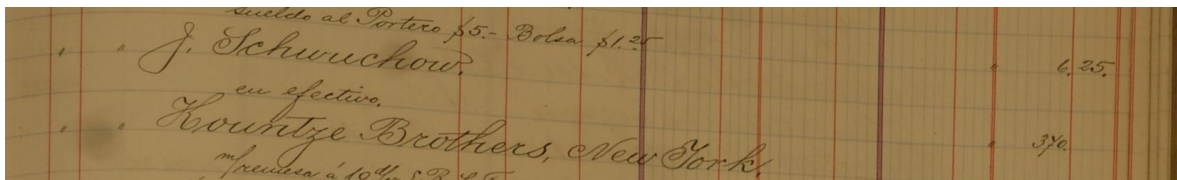 sueldo al Portero $5.- Bolsa $1.25
" " J. Schwuchow. " 6.25.
en efectivo.
" " Kountze Brothers, New York. " 370.
m/remesa á 10 d/v